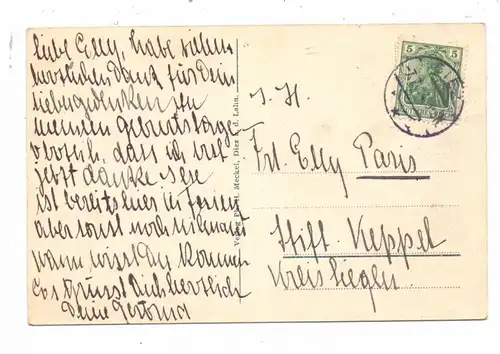 Liebe Elly, habe vielen
herzlichen Dank für Dein
liebes gedenken zu
meinem Geburtstage
dass ich erst
jetzt danke.
ist bereits hier in Ferien
aber sonst noch niemand
wann wirst Du kommen
Es grüsst Dich herzlich
Deine Gertrud
Verlag Phil. Meckel, Diez a. d. Lahn.
5 5
I. H.
Frl. Elly Paris
Stift Keppel
Kreis Siegen